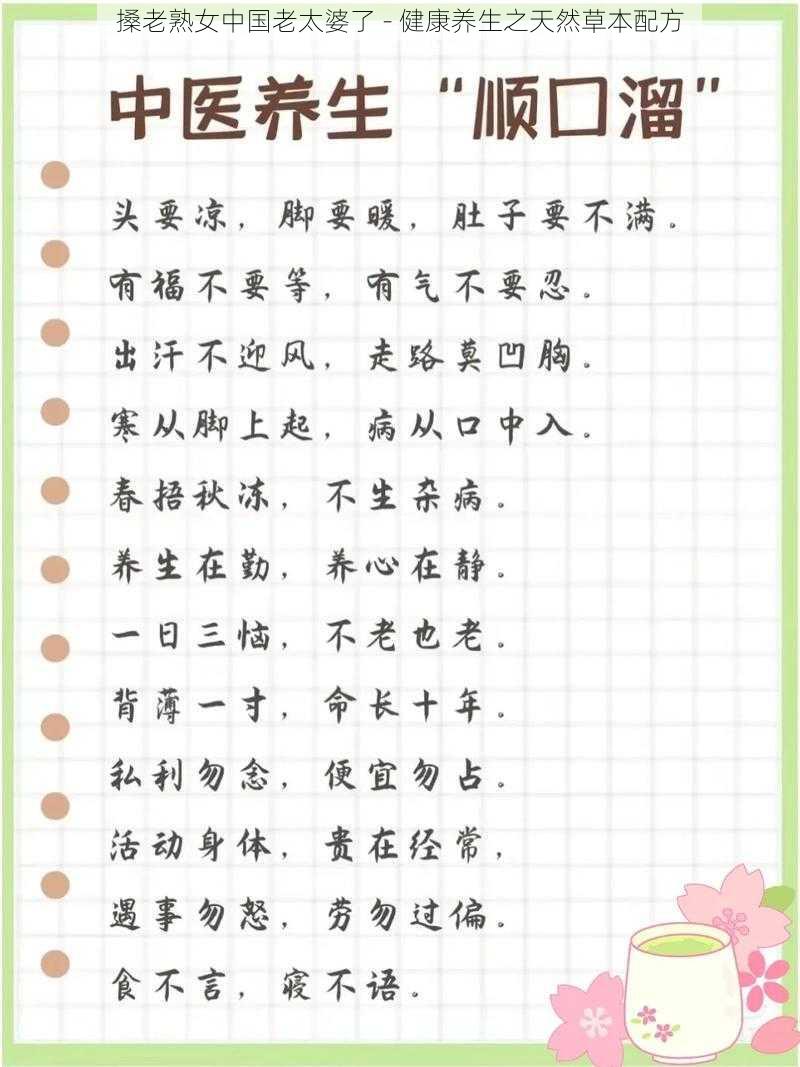 搡老熟女中国老太婆了 - 健康养生之天然草本配方
中医养生“顺口溜”
头要凉，脚要暖，肚子要不满。
有福不要等，有气不要忍。
出汗不迎风，走路莫凹胸。
寒从脚上起，病从口中入。
春捂秋冻，不生杂病。
养生在勤，养心在静。
一日三恼，不老也老。
背薄一寸，命长十年。
私利勿念，便宜勿占。
活动身体，贵在经常，
遇事勿怒，劳勿过偏。
食不言，寝不语。